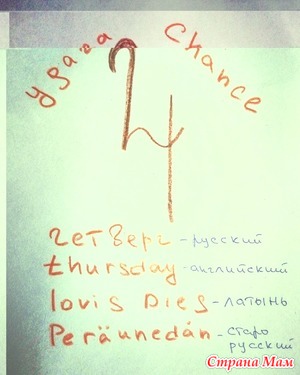 Удача Chance
4
четверг - русский
thursday - английский
Iovis Dies - латынь
Peräunedán - старо русский
Страна Мам